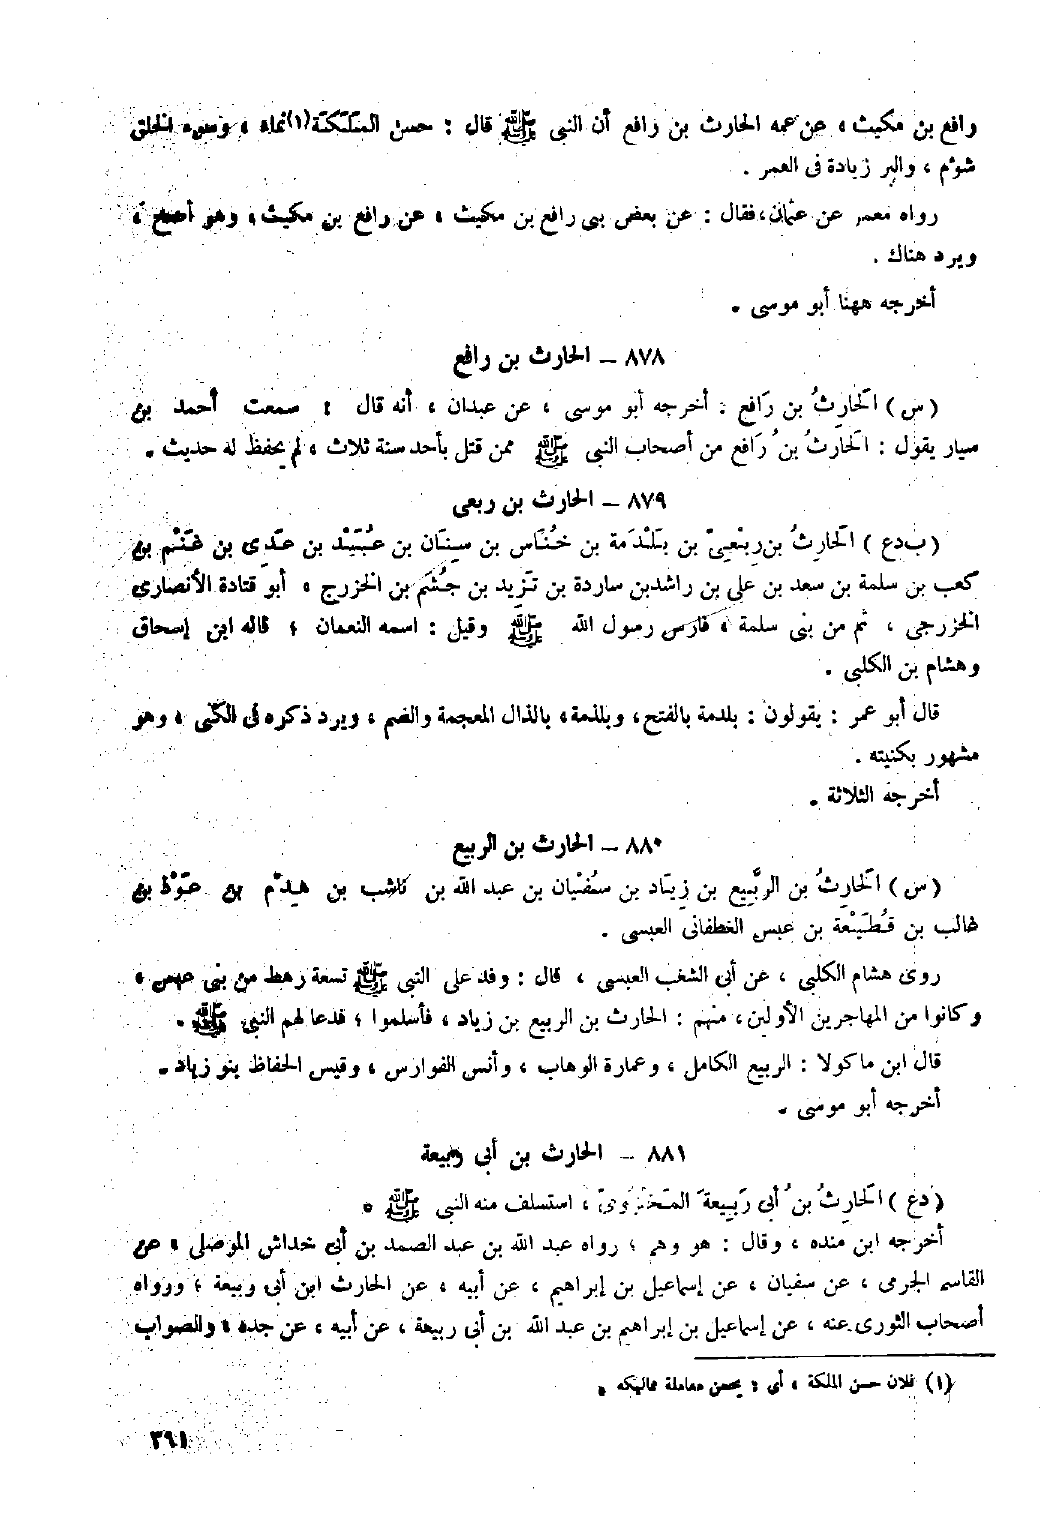 رافع بن مكيث ، عن عمه الحارث بن رافع أن النبى ﷺ قال : حسن المَلَكَة(١) نماء ، وسوء الخلق
شؤم ، والبر زيادة فى العمر .
رواه معمر عن عثمان، فقال : عن بعض بنى رافع بن مكيث ، عن رافع بن مكيث ، وهو أصح ،
ويرد هناك .
أخرجه ههنا أبو موسى .
٨٧٨ – الحارث بن رافع
( س ) الحَارِثُ بن رَافع . أخرجه أبو موسى ، عن عبدان ، أنه قال : سمعت أحمد بن
سيار يقول : الحَارثُ بنُ رَافع من أصحاب النبى ﷺ ممن قتل بأحد سنة ثلاث ، لم يحفظ له حديث .
٨٧٩ – الحارث بن ربعى
( ب د ع ) الحَارِثُ بن رِبْعِيّ بن بَلْدَمَة بن خُنَاس بن سِنَان بن عُبَيْد بن عَدِى بن غَنْم بن
كعب بن سلمة بن سعد بن على بن راشد بن ساردة بن تَزِيد بن جُشَم بن الخزرج ، أبو قتادة الأنصارى
الخزرجى ، ثم من بنى سلمة ، فارس رسول الله ﷺ وقيل : اسمه النعمان ؛ قاله ابن إسحاق
وهشام بن الكلبى .
قال أبو عمر : يقولون : بلدمة بالفتح، وبلذمة، بالذال المعجمة والضم ، ويرد ذكره فى الكُنى ، وهو
مشهور بكنيته .
أخرجه الثلاثة .
٨٨٠ – الحارث بن الربيع
( س ) الحَارِثُ بن الربَّيع بن زِيَاد بن سُفْيَان بن عبد الله بن ناشب بن هِدْم بن عَوْذ بن
غالب بن قُطَيْعَة بن عَبس الغطفانى العبسى .
روى هشام الكلبى ، عن أبى الشغب العبسى ، قال : وفد على النبى ﷺ تسعة رهط من بنى عبس ،
وكانوا من المهاجرين الأولين، منهم : الحارث بن الربيع بن زياد ، فأسلموا ؛ فدعا لهم النبى ﷺ .
قال ابن ماكولا : الربيع الكامل ، وعمارة الوهاب ، وأنس الفوارس ، وقيس الحفاظ بنو زياد .
أخرجه أبو موسى .
٨٨١ – الحارث بن أبى ربيعة
( د ع ) الحَارِثُ بنُ أبى رَبِيعةَ المَخْزُومىّ ، استسلف منه النبى ﷺ .
أخرجه ابن منده ، وقال : هو وهم ؛ رواه عبد الله بن عبد الصمد بن أبى خداش الموصلى ، عن
القاسم الجرمى ، عن سفيان ، عن إسماعيل بن إبراهيم ، عن أبيه ، عن الحارث ابن أبى ربيعة ؛ ورواه
أصحاب الثورى عنه ، عن إسماعيل بن إبراهيم بن عبد الله بن أبى ربيعة ، عن أبيه ، عن جده ، والصواب
(١) فلان حسن الملكة ، أى : يحسن معاملة مماليكه .
٣٩١